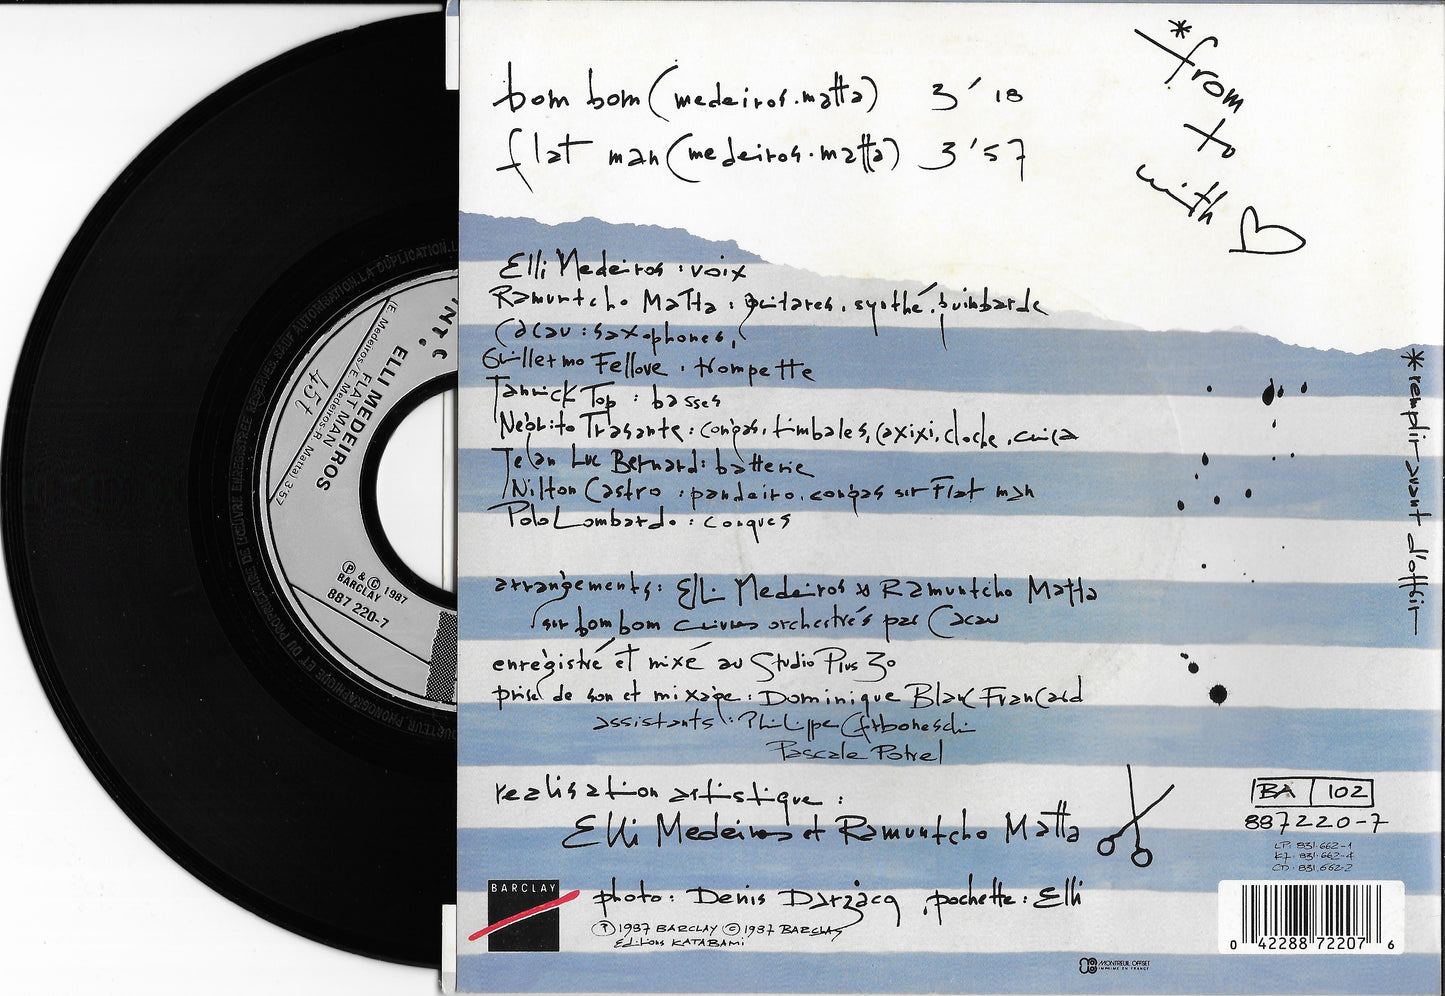 bom bom (medeiros.matta) 3'18
flat man (medeiros.matta) 3'57
*from
to
with
Elli Medeiros : voix
Ramuntcho Matta : guitares, synthé, guimbarde
Cacau : saxophones,
Guillermo Fellove : trompette
Jannick Top : basses
Negrito Trasante : congas, timbales, caxixi, cloche, cuica
Jean Luc Bernard : batterie
Nilton Castro : pandeiro, congas sur Flat man
Polo Lombardo : conques
*remplir avant d'offrir
arrangements : Elli Medeiros & Ramuntcho Matta
sur bom bom cuivres orchestrés par Cacau
enregistré et mixé au Studio Plus 30
prise de son et mixage : Dominique Blanc Francard
assistants : Philippe
Pascale Potrel
realisation artistique :
Elli Medeiros et Ramuntcho Matta
BA 102
887220-7
LP : 831.662-1
K7 : 831.662-4
CD : 831.662-2
BARCLAY
photo : Denis Darzacq , pochette : Elli
Ⓟ 1987 BARCLAY © 1987 BARCLAY
Editions KATABAMI
0 42288 72207 6
MONTREUIL OFFSET
IMPRIME EN FRANCE
ELLI MEDEIROS
FLAT MAN
(E. Medeiros/E. Medeiros-R. Matta) 3'57
45t
Ⓟ & © 1987
BARCLAY
887 220-7